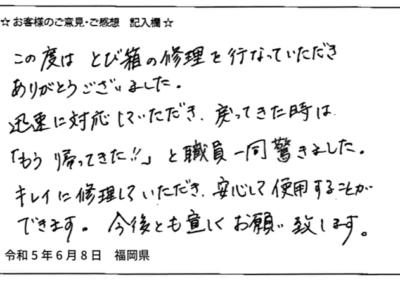 ☆お客様のご意見・ご感想 記入欄☆
この度は とび箱の修理を行なっていただき
ありがとうございました。
迅速に対応していただき、戻ってきた時は
「もう帰ってきた!!」と職員一同驚きました。
キレイに修理していただき、安心して使用することが
できます。今後とも宜しくお願い致します。
令和5年6月8日 福岡県